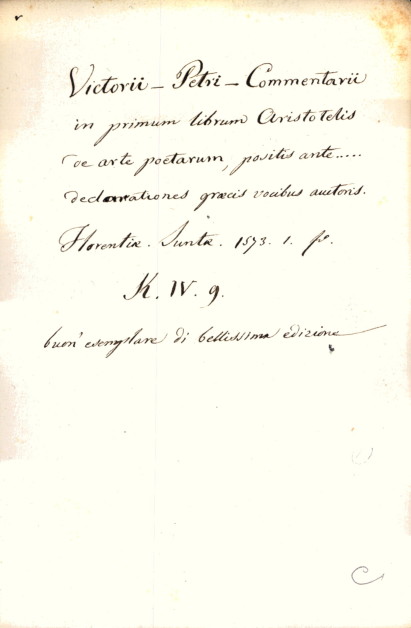 Victorii - Petri - Commentarii
in primum librum Aristotelis
de arte poetarum, positis ante.....
declarationes græcis vocibus auctoris.
Florentiæ. Juntæ. 1573. 1. fº.
K. IV. 9.
buon' esemplare di bellissima edizione
C